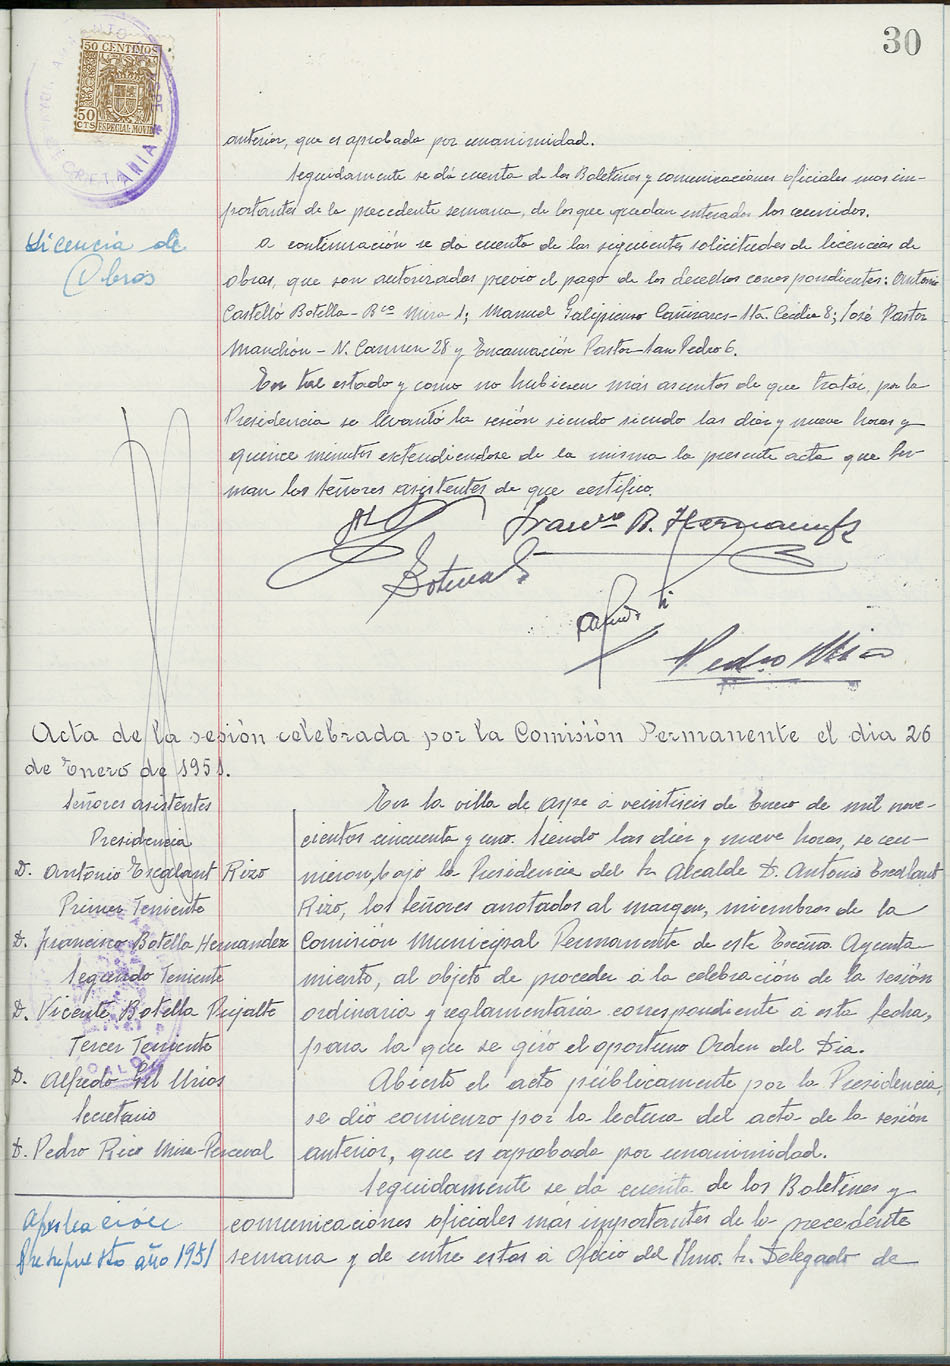 30
50 CENTIMOS
50
CTS ESPECIAL MOVIL
anterior, que es aprobada por unanimidad.
Seguidamente se dá cuenta de los Boletines y comunicaciones oficiales mas im-
portantes de la precedente semana, de los que quedan enterados los reunidos.
Licencia de
Obras
A continuación se da cuenta de las siguientes solicitudes de licencias de
obras, que son autorizadas previo el pago de los derechos correspondientes: Antonio
Castelló Botella - Bco Mira 1; Manuel Galipienso Cañizares - Stª Cecilia 8; José Pastor
Manchón - N. Carmen 28 y Encarnación Pastor - San Pedro 6.
En tal estado y como no hubiesen más asuntos de que tratar, por la
Presidencia se levantó la sesión siendo siendo las diez y nueve horas y
quince minutos extendiendose de la misma la presente acta que fir-
man los señores asistentes de que certifico.
Franco B. Hernandez
Botella
Pedro Rico
Acta de la sesión celebrada por la Comisión Permanente el dia 26
de Enero de 1951.
Señores asistentes
Presidencia
D. Antonio Escalant Rizo
Primer Teniente
D. Francisco Botella Hernandez
Segundo Teniente
D. Vicente Botella Pujalte
Tercer Teniente
D. Alfredo Gil Urios
Secretario
D. Pedro Rico Mira-Perceval
En la villa de Aspe á veintiseis de Enero de mil nove-
cientos cincuenta y uno. Siendo las diez y nueve horas, se reu-
nieron, bajo la Presidencia del Sr Alcalde D. Antonio Escalant
Rizo, los señores anotados al margen, miembros de la
Comisión Municipal Permanente de este Excmo. Ayunta-
miento, al objeto de proceder a la celebración de la sesión
ordinaria y reglamentaria correspondiente á esta fecha,
para la que se giró el oportuno Orden del Dia.
Abierto el acto públicamente por la Presidencia,
se dió comienzo por la lectura del acta de la sesión
anterior, que es aprobada por unanimidad.
Seguidamente se dá cuenta de los Boletines y
Aprobación
Presupuesto año 1951
comunicaciones oficiales más importantes de la precedente
semana y de entre estos á Oficio del Ilmo. Sr. Delegado de